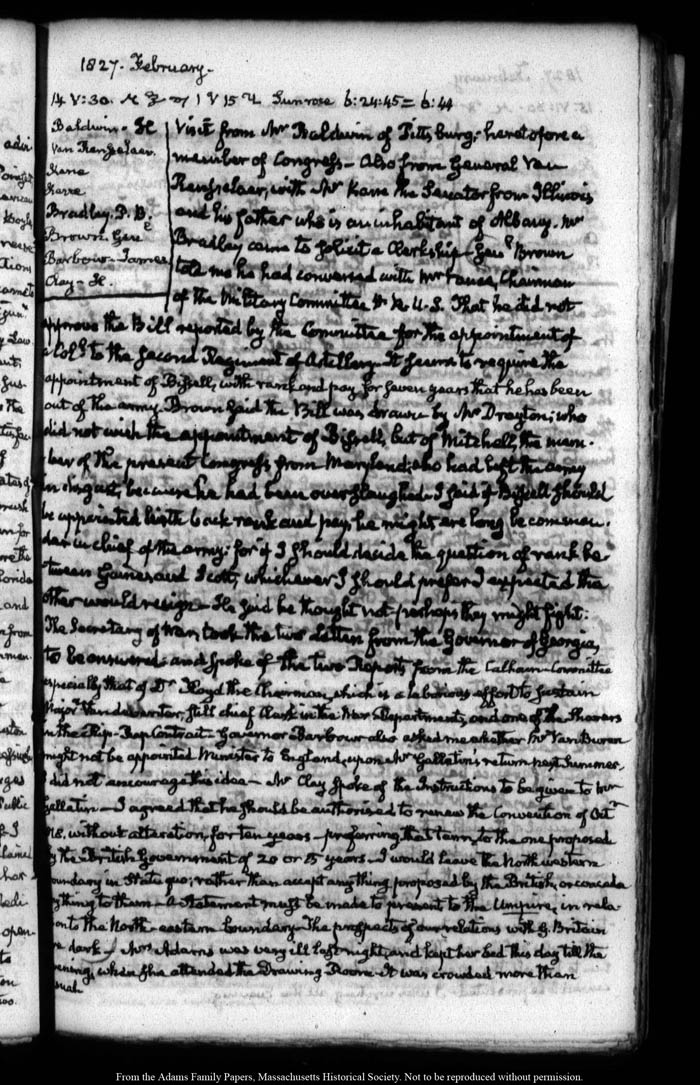 1827. February.
14 V:30. Sun rose 6:24:45 = 6:44
Baldwin - H
Van Rensselaer
Kane
Kane
Bradley. P. B.
Brown. Genl
Barbour - James
Clay - H.
Visit from Mr Baldwin of Pittsburg; heretofore a
member of Congress - Also from General Van
Rensselaer, with Mr Kane the Senator from Illinois
and his father who is an inhabitant of Albany. Mr
Bradley came to solicit a Clerkship - Genl Brown
told me he had conversed with Mr Vance, Chairman
of the Military Committee H. R. U.S. That he did not
approve the Bill reported by the Committee for the appointment of
a Coll to the second Regiment of Artillery. It seems to require the
appointment of Bissell, with rank and pay for seven years that he has been
out of the army. Brown said the Bill was drawn by Mr Drayton; who
did not wish the appointment of Bissell, but of Mitchell, the mem-
ber of the present Congress from Maryland; who had left the army
in disgust, because he had been overslaughed. I said if Bissell should
be appointed with back rank and pay, he might ere long be comman-
der in chief of the army: for if I should decide the question of rank be-
tween Gaines and Scott, whichever I should prefer I expected the
other would resign - He said he thought not - perhaps they might fight:
The Secretary of War took the two Letters from the Governor of Georgia,
to be answered: and spoke of the two Reports from the Calhoun-Committee
especially that of Dr Floyd the Chairman, which is a laborious effort to sustain
Major Vandeventer, still chief Clerk in the War Department, and one of the Sharers
in the Rip-Rap Contract. Governor Barbour also asked me whether Mr Van Buren
might not be appointed Minister to England, upon Mr Gallatin's return next Summer.
I did not encourage this idea - Mr Clay spoke of the Instructions to be given to Mr
Gallatin - I agreed that he should be authorised to renew the Convention of Octr
1818. without alteration, for ten years - preferring that term, to the one proposed
by the British Government of 20 or 15 years - I would leave the North western
boundary in Statu quo; rather than accept any thing proposed by the British, or concede
any thing to them - A Statement must be made to present to the Umpire, in rela-
tion to the North-eastern boundary - The prospects of our relations with G. Britain
are dark - Mrs Adams was very ill last night, and kept her bed this day till the
evening, when she attended the Drawing Room. It was crowded more than
usual
From the Adams Family Papers, Massachusetts Historical Society. Not to be reproduced without permission.